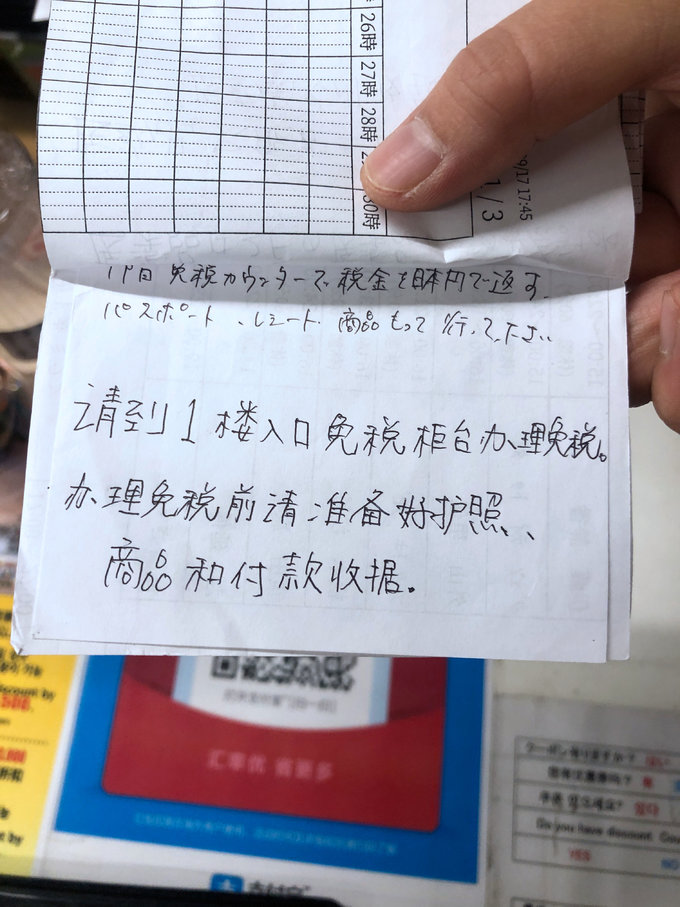 26時
27時
28時
30時
9/17 17:45
1/3
免税カウンターで税金を日本円で返す
パスポート、レシート、商品もって行って下さい
请到1楼入口免税柜台办理免税。
办理免税前请准备好护照、
商品和付款收据。
汇率优 省更多
支付宝
discount by
500.
クーポン有りますか? はい
你有优惠券吗? 有
쿠폰 있으세요? 있다
Do you have discount Cou
YES
NO